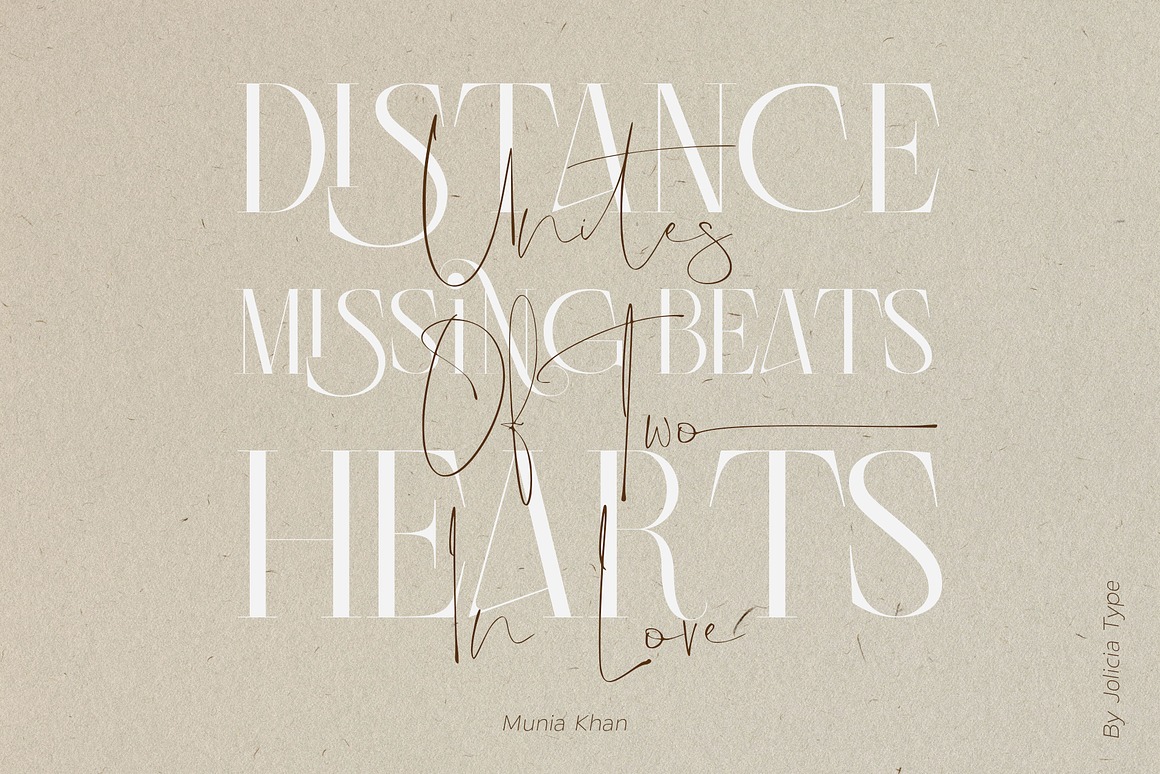 DISTANCE
Unites
MISSING BEATS
Of Two
HEARTS
In Love
Munia Khan
By Jolicia Type